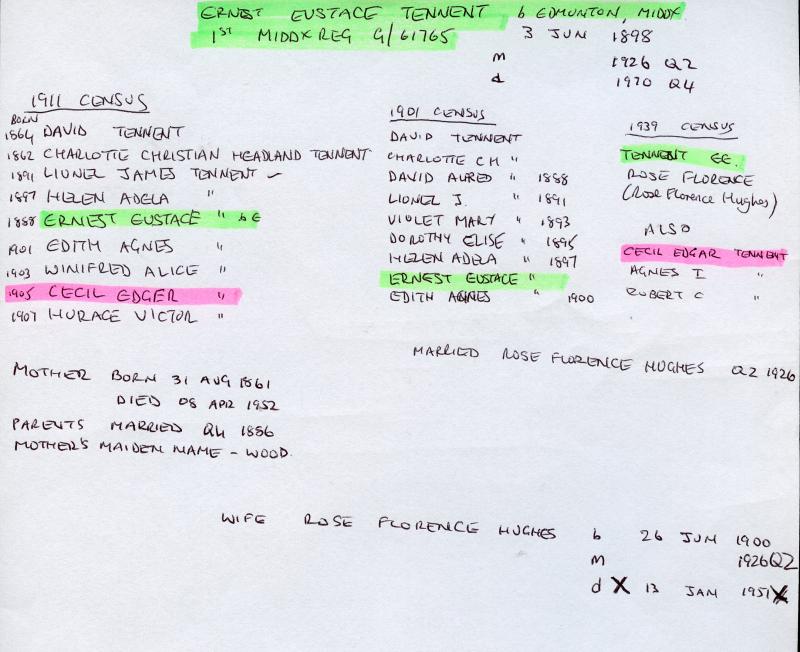 ERNEST EUSTACE TENNENT b EDMONTON, MIDDX
1ST MIDDX REG G/61765 3 JUN 1898
m 1926 Q2
d 1970 Q4
1911 CENSUS
BORN
1864 DAVID TENNENT
1862 CHARLOTTE CHRISTIAN HEADLAND TENNENT
1891 LIONEL JAMES TENNENT ✓
1897 HELEN ADELA "
1888 ERNIEST EUSTACE " b E
1901 EDITH AGNES "
1903 WINIFRED ALICE "
1905 CECIL EDGER "
1907 HORACE VICTOR "
1901 CENSUS
DAVID TENNENT
CHARLOTTE CH "
DAVID ALFRED " 1888
LIONEL J. " 1891
VIOLET MARY " 1893
DOROTHY ELISE " 1895
HELEN ADELA " 1897
ERNEST EUSTACE "
EDITH AGNES " 1900
1939 CENSUS
TENNENT EE.
ROSE FLORENCE
(Rose Florence Hughes)
ALSO
CECIL EDGAR TENNENT
AGNES I "
ROBERT C "
MARRIED ROSE FLORENCE HUGHES Q2 1926
MOTHER BORN 31 AUG 1861
DIED 08 APR 1952
PARENTS MARRIED Q4 1886
MOTHER'S MAIDEN NAME - WOOD.
WIFE ROSE FLORENCE HUGHES b 26 JUN 1900
m 1926 Q2
d X 13 JAN 1951 X